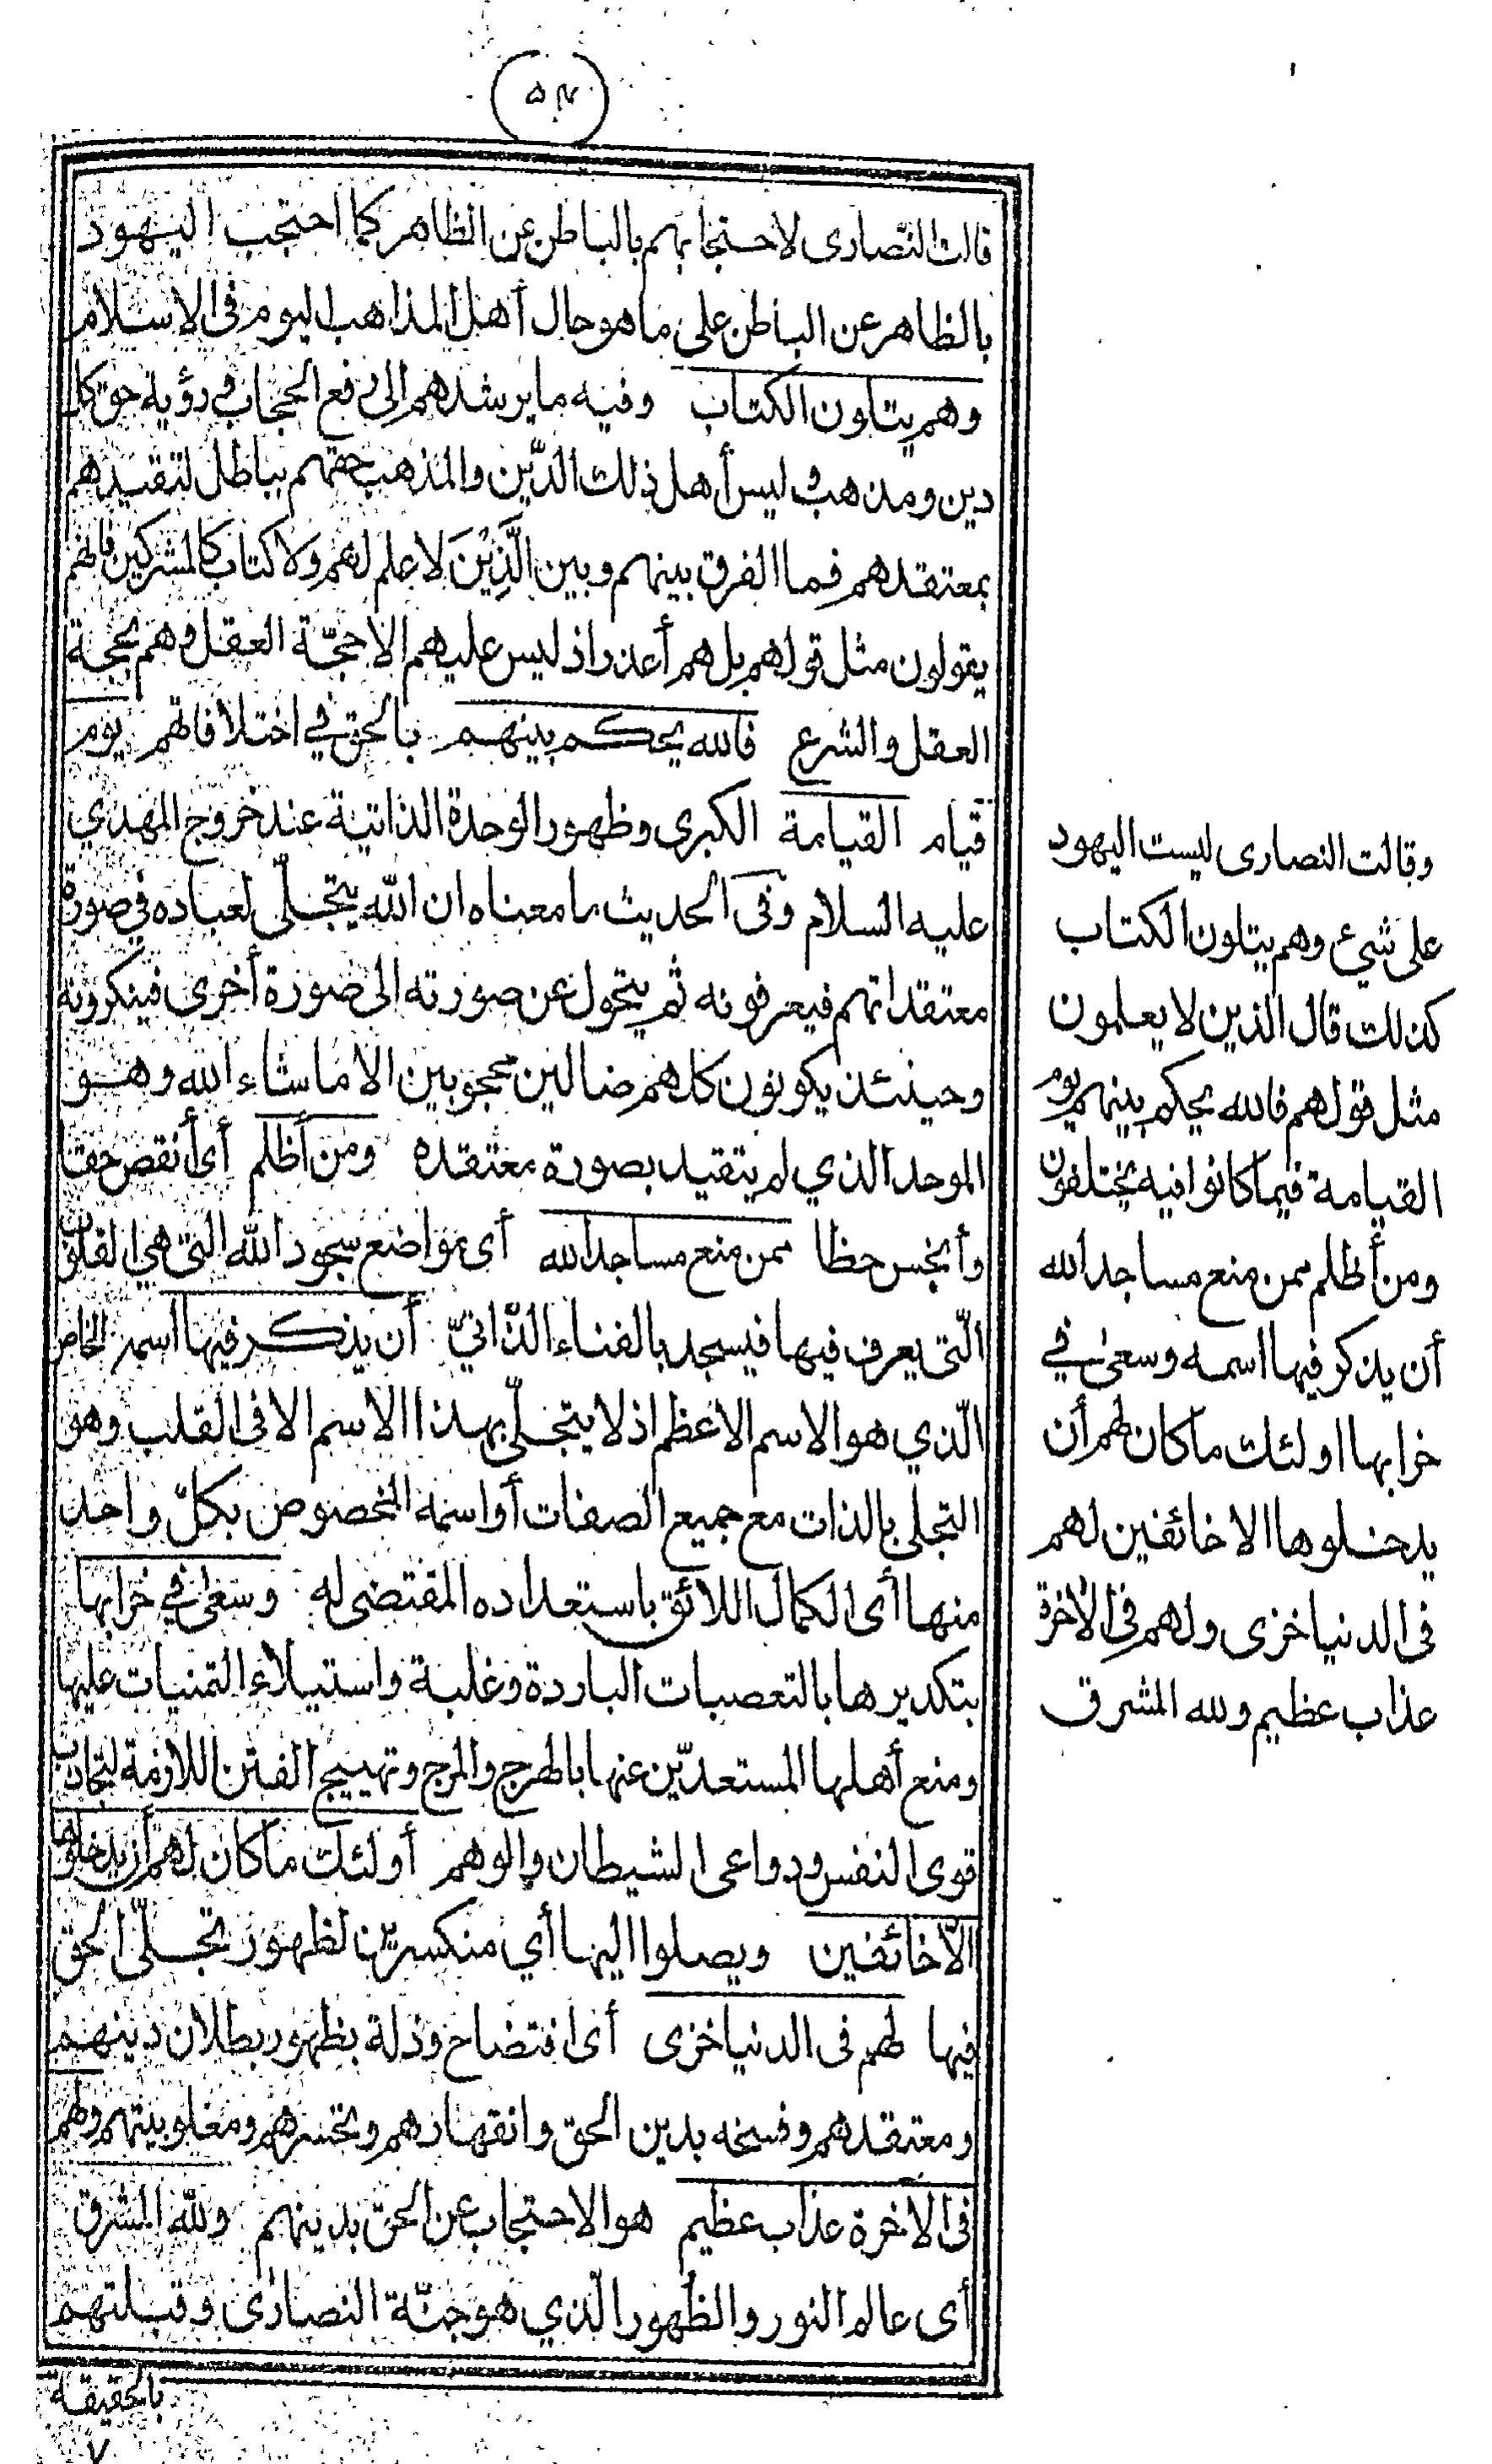 ٥٤
قالت النّصارى لاحتجابهم بالباطن عن الظاهر كما احتجب اليهود
بالظاهر عن الباطن على ما هو حال أهل المذاهب اليوم فى الاسلام
وهم يتلون الكتاب وفيه ما يرشدهم الى رفع الحجاب و رؤية حق كل
دين ومذهب و ليس أهل ذلك الدّين والمذهب حقهم بباطل لتقيدهم
بمعتقدهم فما الفرق بينهم وبين الَّذِيْنَ لا علم لهم ولا كتاب كالمشركين فانهم
يقولون مثل قولهم بل هم أعذر اذ ليس عليهم الا حجّة العقل وهم بحجة
العقل والشرع فالله يحكم بينهم بالحق في اختلافاتهم يوم
قيام القيامة الكبرى وظهور الوحدة الذاتية عند خروج المهدي
عليه السلام وفى الحديث ما معناه ان الله يتجلّى لعباده في صورة
معتقداتهم فيعرفونه ثم يتحول عن صورته الى صورة أخرى فينكرونه
وحينئذ يكونون كلهم ضالين محجوبين الا ما شاء الله وهو
الموحد الذي لم يتقيد بصورة معتقده ومن أظلم أى أنقص حقا
وأبخس حظا ممن منع مساجد الله أى مواضع سجود الله التى هي القلوب
الّتى يعرف فيها فيسجد بالفناء الذّاتيّ أن يذكر فيها اسمه الخاص
الّذي هو الاسم الاعظم اذ لا يتجلّى بهذا الاسم الا فى القلب وهو
التجلى بالذات مع جميع الصفات أو اسمه المخصوص بكلّ واحد
منها أى الكمال اللائق باستعداده المقتضى له وسعى في خرابها
بتكديرها بالتعصبات الباردة وغلبة واستيلاء التمنيات عليها
ومنع أهلها المستعدّين عنها بالهرج والمرج وتهييج الفتن اللازمة لتجاذب
قوى النفس ودواعى الشيطان والوهم أولئك ما كان لهم أن يدخلوها
الّا خائفين ويصلوا اليها أي منكسرين لظهور تجلّى الحق
فيها لهم فى الدنيا خزى أى افتضاح وذلة بظهور بطلان دينهم
ومعتقدهم وفسخه بدين الحق وانقهارهم وتحسرهم ومغلوبيتهم ولهم
فى الاخرة عذاب عظيم هو الاحتجاب عن الحق بدينهم ولله المشرق
أى عالم النور والظهور الّذي هو جنّة النصارى وقبلتهم
بالحقيقة
وقالت النصارى ليست اليهود
على شيء وهم يتلون الكتاب
كذلك قال الذين لا يعلمون
مثل قولهم فالله يحكم بينهم يوم
القيامة فيما كانوا فيه يختلفون
ومن أظلم ممن منع مساجد الله
أن يذكر فيها اسمه وسعى في
خرابها اولئك ما كان لهم أن
يدخلوها الا خائفين لهم
فى الدنيا خزى ولهم فى الاخرة
عذاب عظيم ولله المشرق